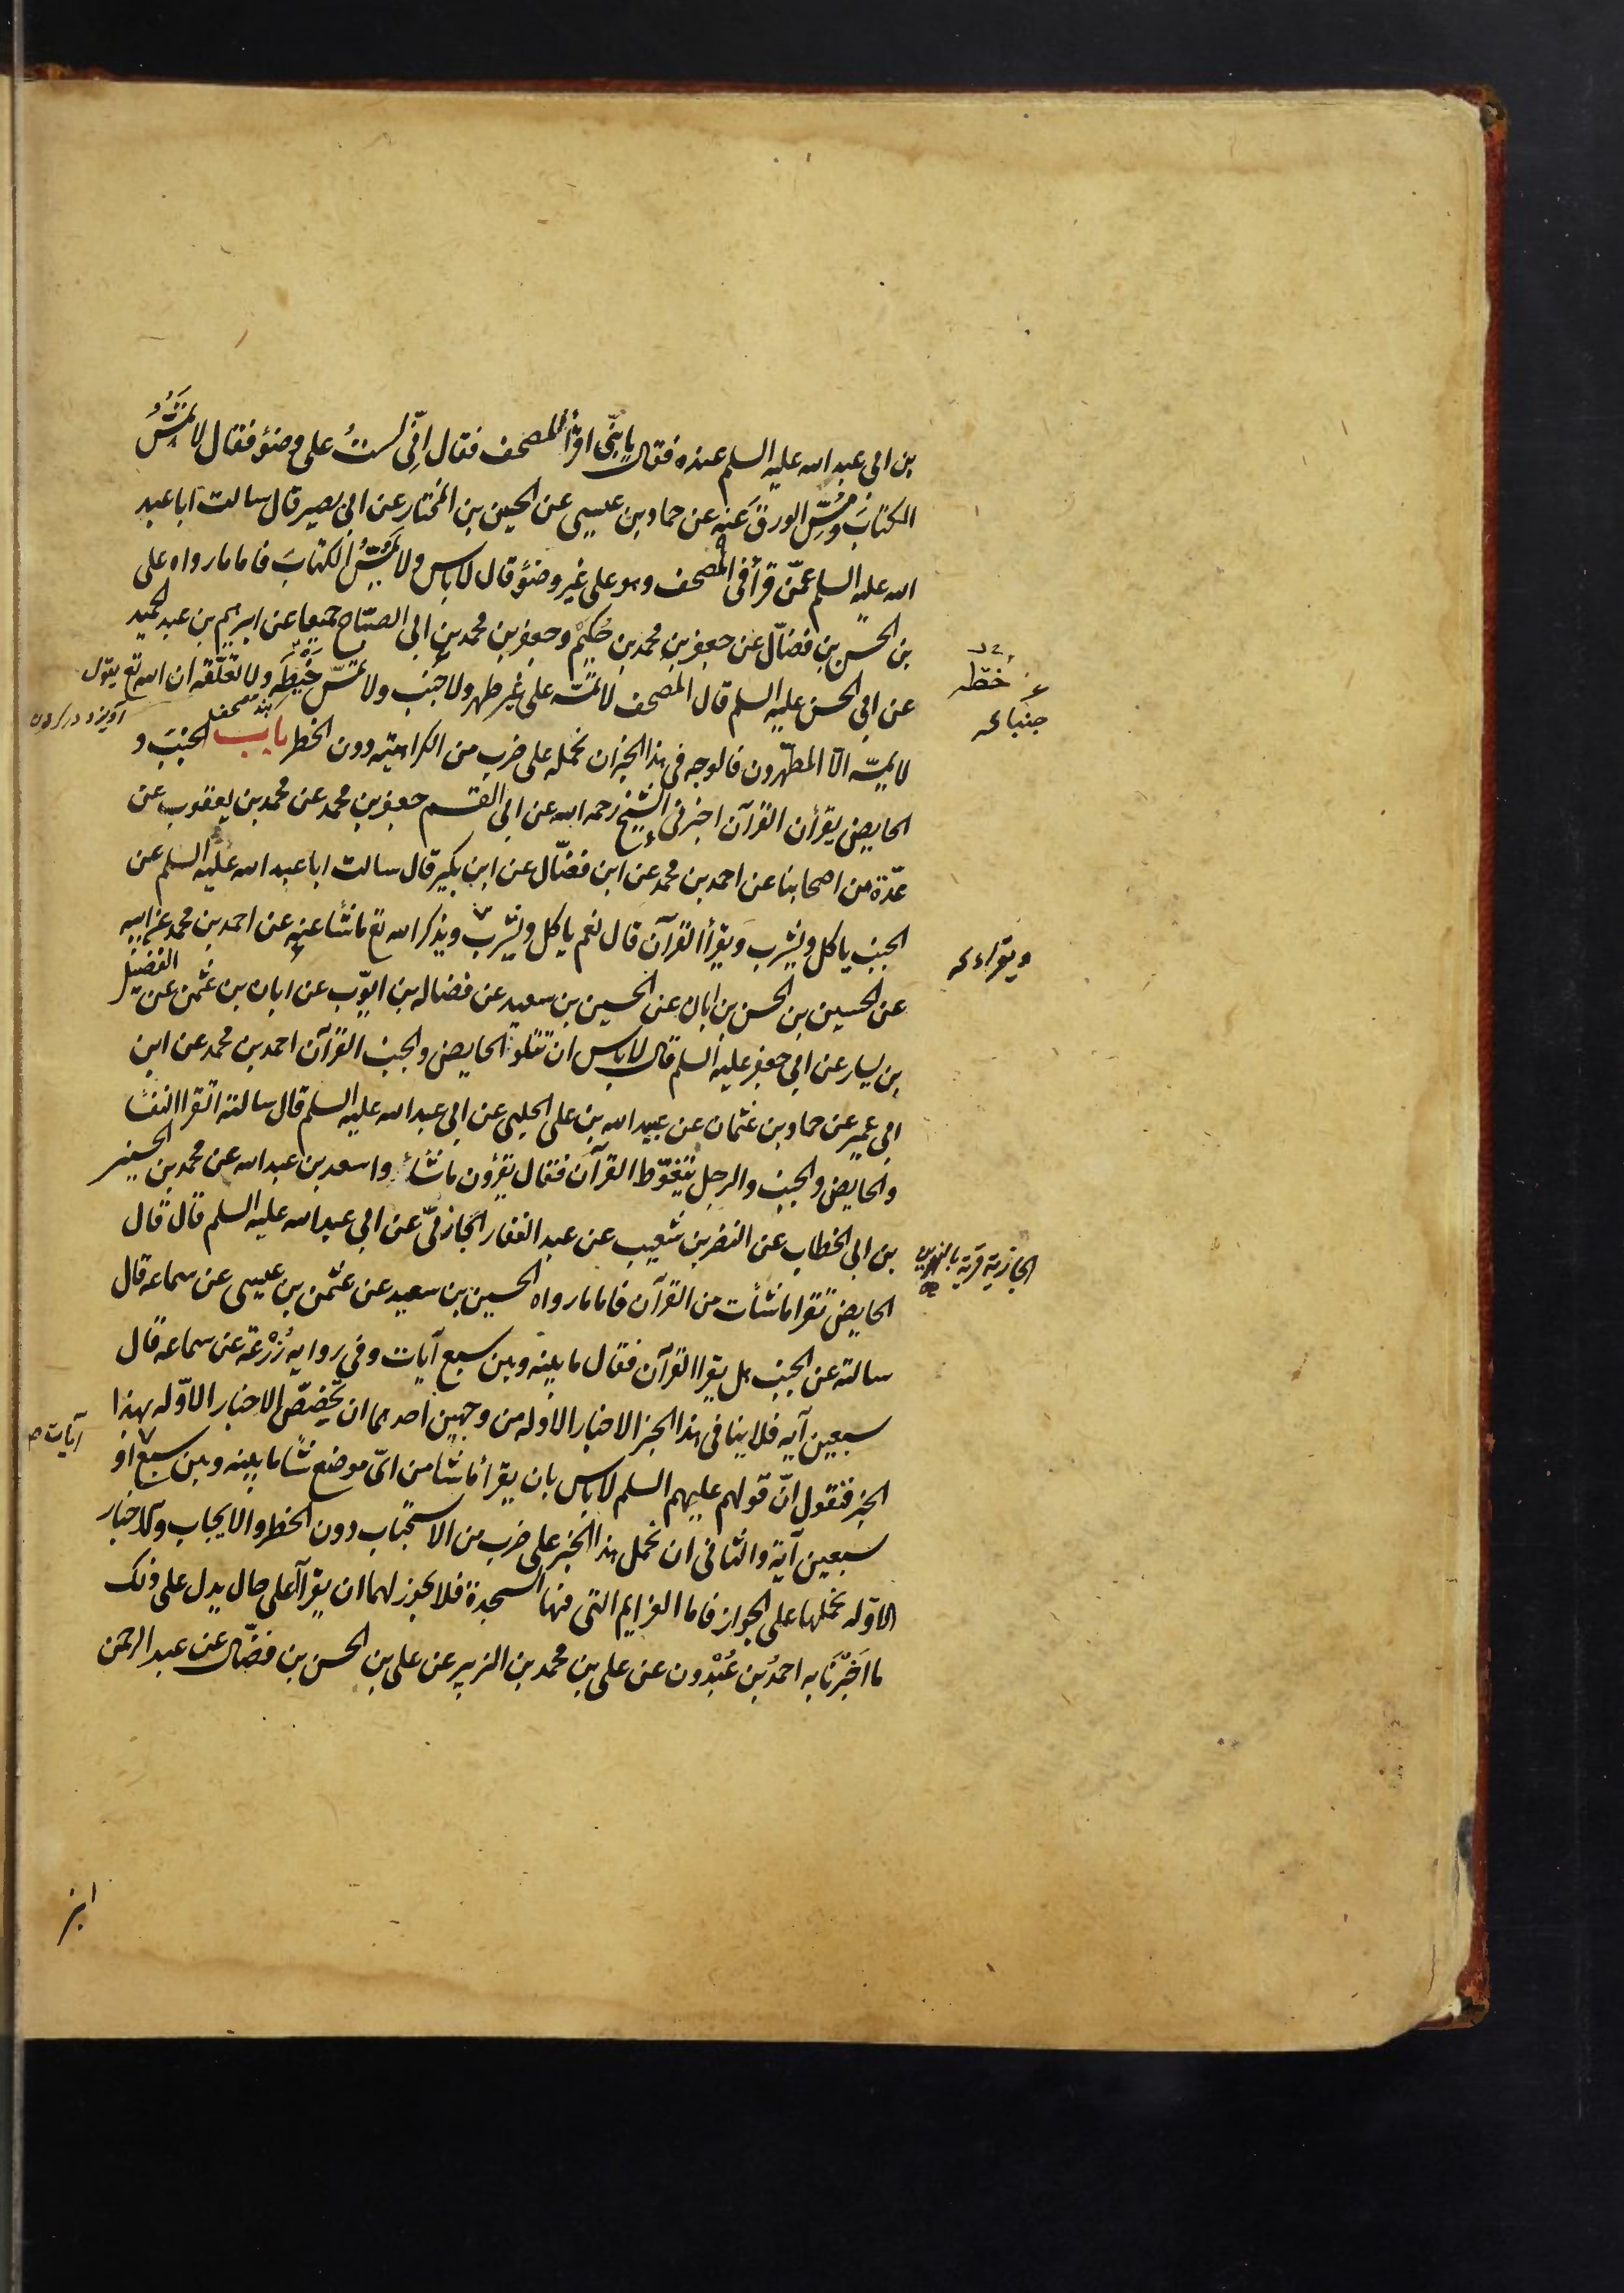 بن ابى عبد الله عليه السلم عنده فقال يا بنىّ اقرأ المصحف فقال انّى لستُ على وضؤ فقال لا تمسُّ
الكتابَ ومسَّ الورقَ عنه عن حماد بن عيسى عن الحسين بن المختار عن ابى بصير قال سالت ابا عبد
الله عليه السلم عمّن قرأ فى المصحف وهو على غير وضؤ قال لا باس ولا يمسُّ الكتابَ فاما ما رواه على
بن الحسن بن فضّال عن جعفر بن محمد بن حُكيم وجعفر بن محمد بن ابى الصبّاح جميعا عن ابرهيم بن عبد الحميد
خطّه
عن ابى الحسن عليه السلم قال المصحف لا تمسّه على غير طهر ولا جنب ولا تمسّ خيطه ولا تعلّقه ان الله تع يقول
جنبا
لا يمسّه الّا المطهّرون فالوجه فى هذا الخبر ان نحمله على ضرب من الكراهيّه دون الخطر باب الجنب و
الحايض يقرأن القرآن اخبرنى الشيخ رحمه الله عن ابى القسم جعفر بن محمد عن محمد بن يعقوب عن
عدّة من اصحابنا عن احمد بن محمد عن ابن فضّال عن ابن بكير قال سالت ابا عبد الله عليه السلم عن
الجنب ياكل ويشرب ويقرأ القرآن قال نعم ياكل ويشرب ويذكر الله تع ما شأ عنه عن احمد بن محمد عن ابيه
ويقراء
عن الحسين بن الحسن بن ابان عن الحسين بن سعيد عن فضاله بن ايّوب عن ابان بن عثمن عن الفضيل
بن يسار عن ابى جعفر عليه السلم قال لا باس ان تتلو الحايض والجنب القرآن احمد بن محمد عن ابن
ابى عمير عن حماد بن عثمان عن عبيد الله بن على الحلبى عن ابى عبد الله عليه السلم قال سالته اتقرا النفسا
والحايض والجنب والرجل يتغوّط القرآن فقال يقرؤن ما شأوا سعد بن عبد الله عن محمد بن الحسين
بن ابى الخطاب عن النضر بن شعيب عن عبد الغفار الجازىّ عن ابى عبد الله عليه السلم قال قال
الجازية قرية بالنهرين
الحايض تقرا ما شأت من القرآن فاما ما رواه الحسين بن سعيد عن عثمن بن عيسى عن سماعه قال
سالته عن الجنب هل يقرا القرآن فقال ما بينه وبين سبع آيات وفى روايه زُرْعَة عن سماعه قال
سبعين آيه فلا ينافى هذا الخبر الاخبار الاوله من وجهين احدهما ان نخصّص الاخبار الاوّله بهذا
الخبر فنقول انّ قولهم عليهم السلم لا باس بان يقرأ ما شأ من اىّ موضع شأ ما بينه وبين سبع او
آيات
سبعين آية والثانى ان نحمل هذا الخبر على ضرب من الاستحباب دون الخطر والايجاب والاخبار
الاوّله نحملها على الجواز فاما العزايم التى فيها السجدة فلا يجوز لهما ان يقرآ على حال يدل على ذلك
ما اَخبَرَنا به احمدُ بن عُبْدُون عن على بن محمد بن الزبير عن على بن الحسن بن فضّال عن عبد الرحمن
ابن